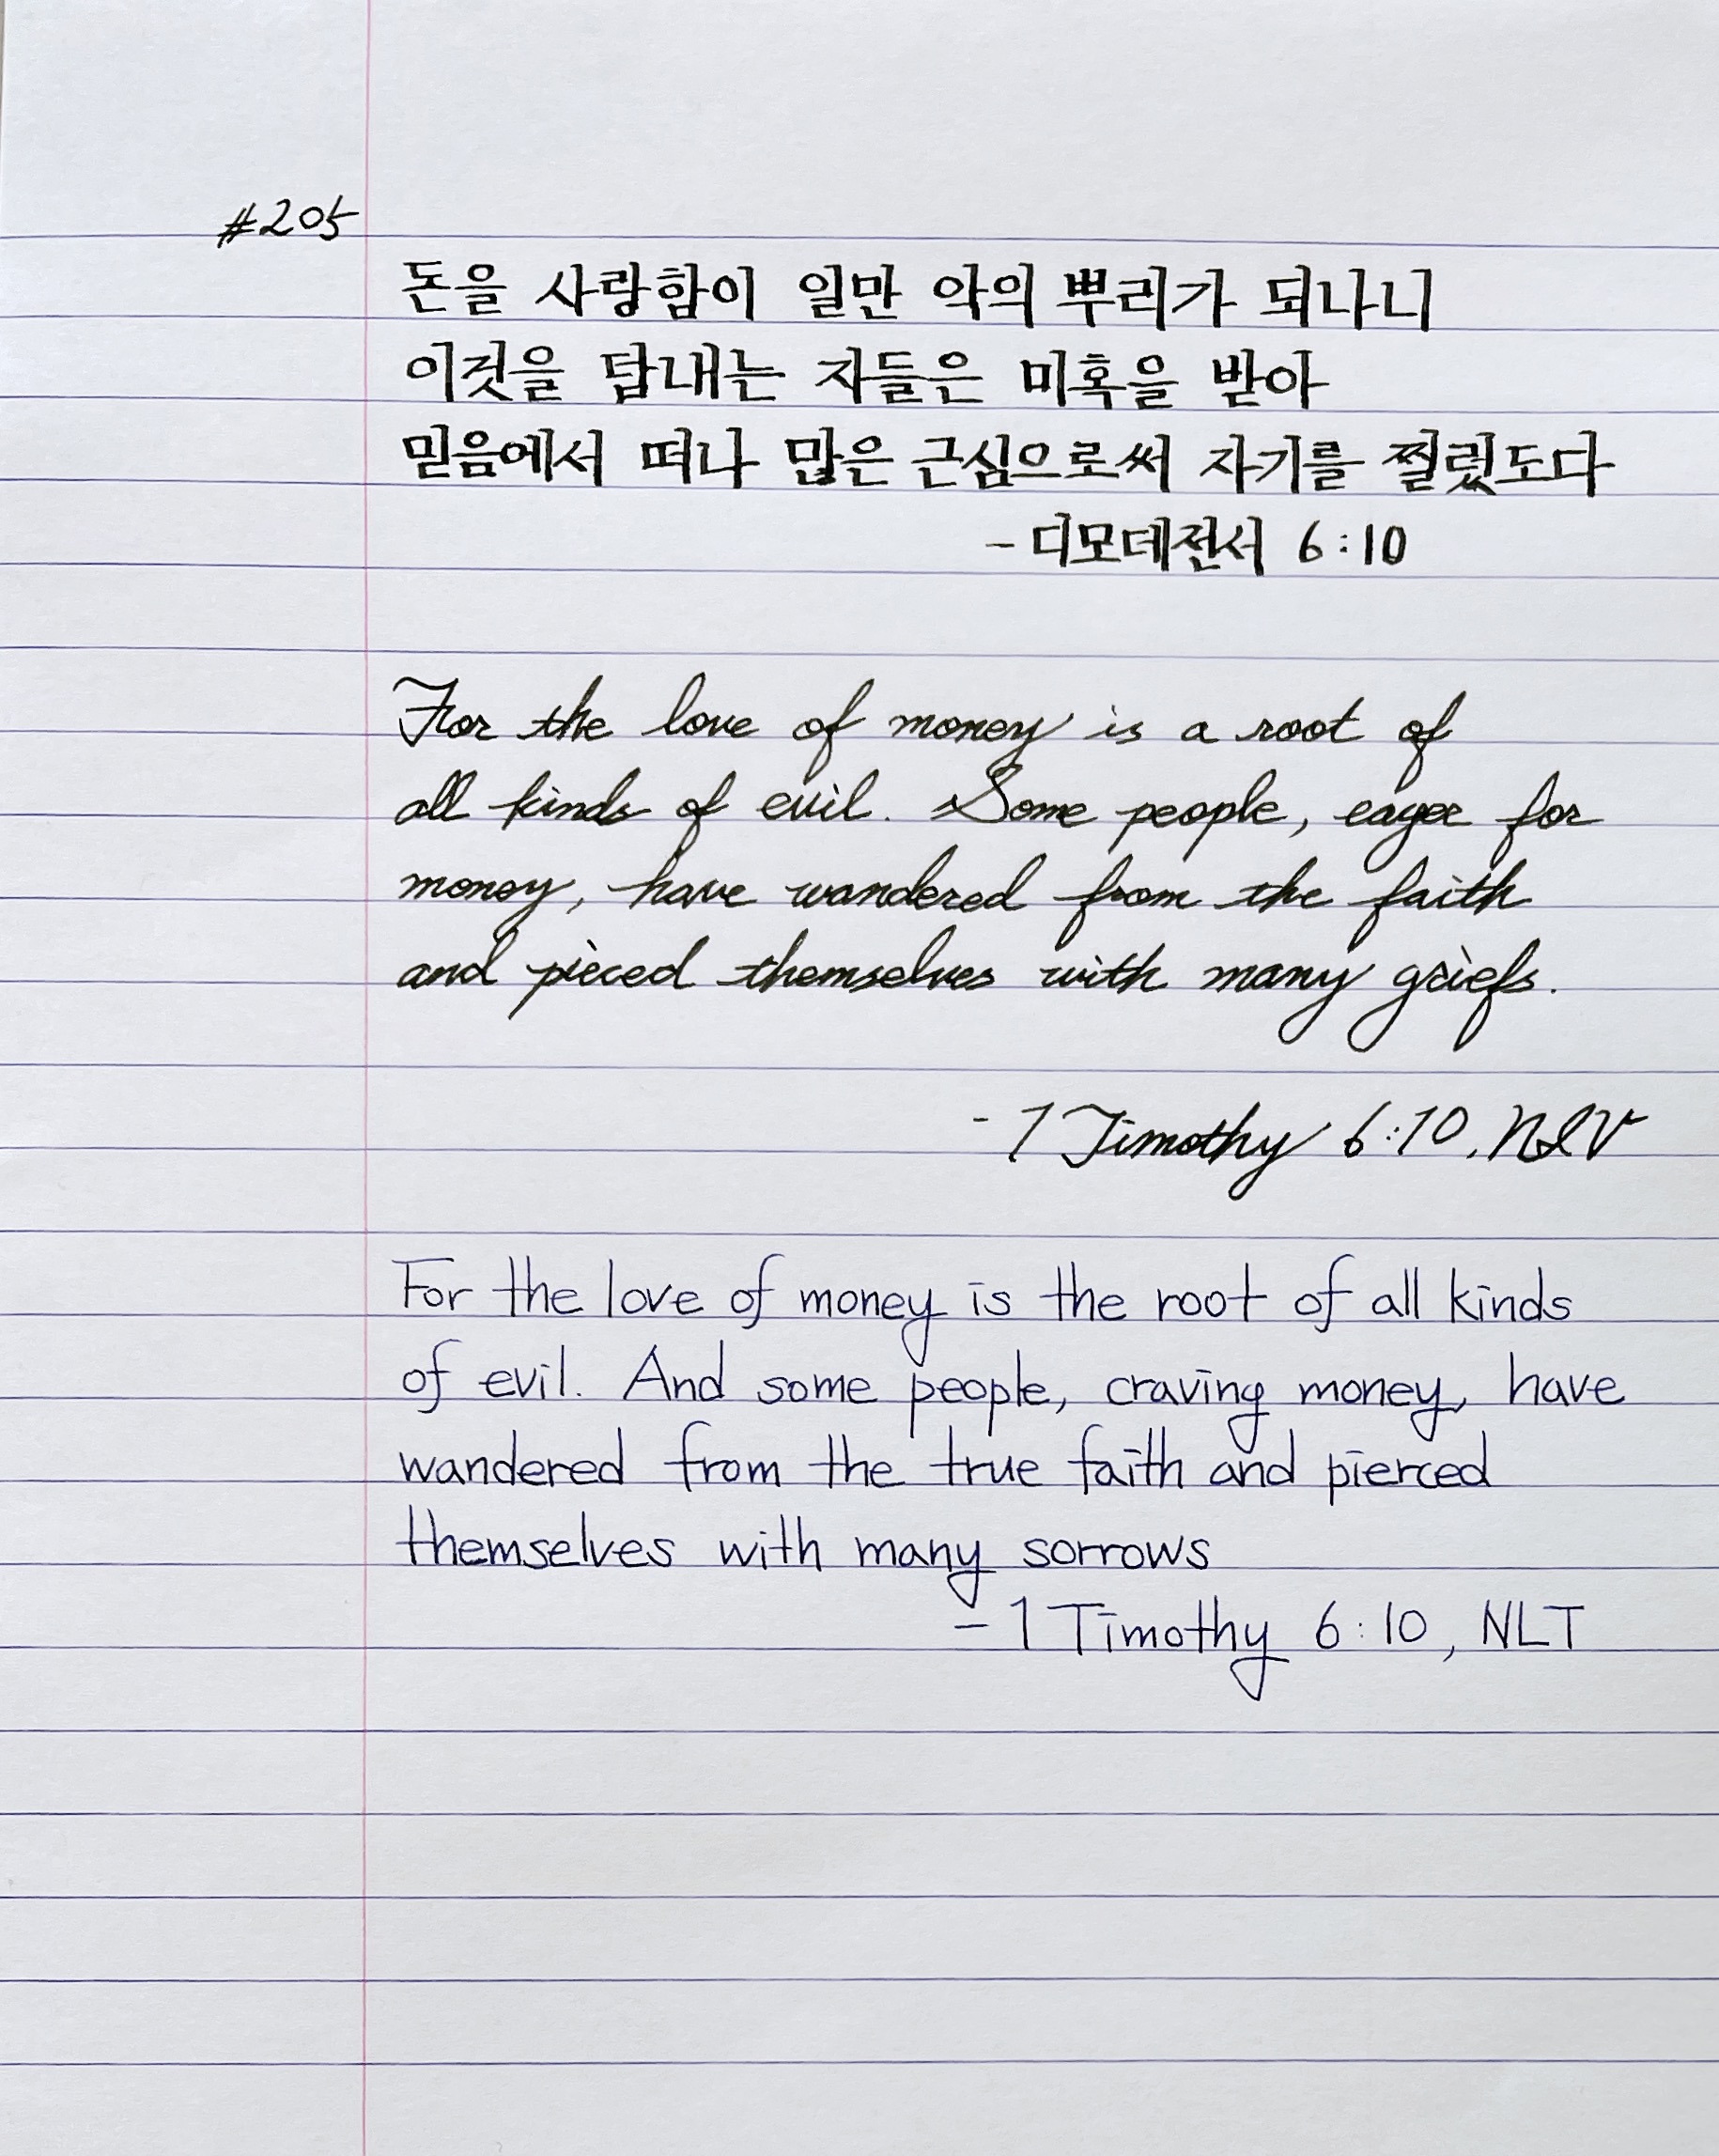 #205
돈을 사랑함이 일만 악의 뿌리가 되나니
이것을 탐내는 자들은 미혹을 받아
믿음에서 떠나 많은 근심으로써 자기를 찔렀도다
- 디모데전서 6:10
For the love of money is a root of
all kinds of evil. Some people, eager for
money, have wandered from the faith
and pieced themselves with many griefs.
- 1 Timothy 6:10, NIV
For the love of money is the root of all kinds
of evil. And some people, craving money, have
wandered from the true faith and pierced
themselves with many sorrows
- 1 Timothy 6:10, NLT